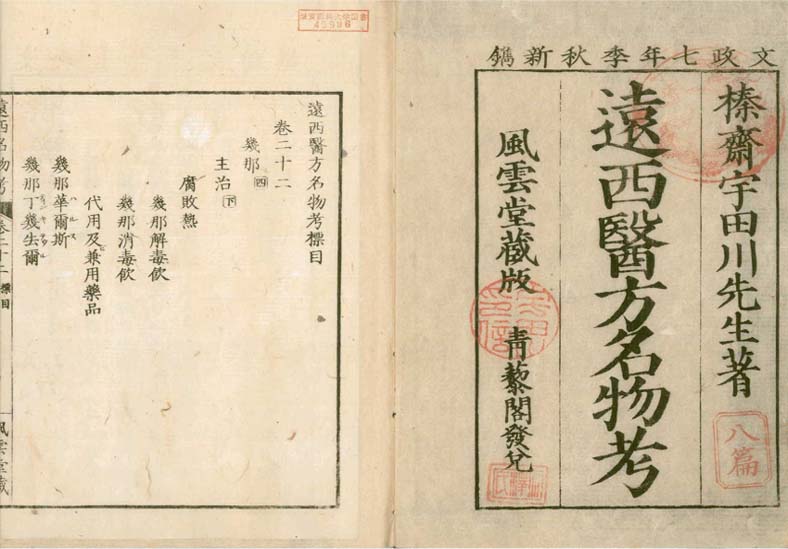 文政七年季秋新鐫
榛齋宇田川先生著
八篇
遠西醫方名物考
風雲堂藏版 青藜閣發兌
遠西醫方名物考標目
卷二十二
幾那 四
主治 下
腐敗熱
幾那解毒飲
幾那消毒飲
代用及兼用藥品
幾那華爾斯
幾那丁幾生爾
遠西名物考 卷二十二 標目 風雲堂藏